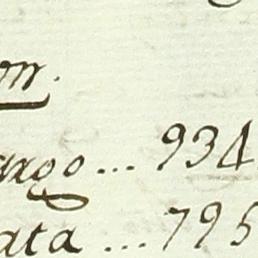 on.
argo ... 934
ata ... 795